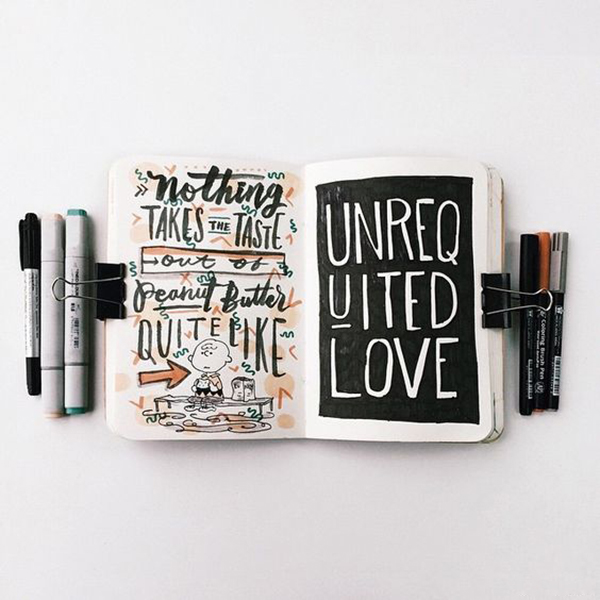 Nothing
TAKES THE TASTE
out of
Peanut Butter
QUITE LIKE
UNREQ
UITED
LOVE
Coloring Brush Pen